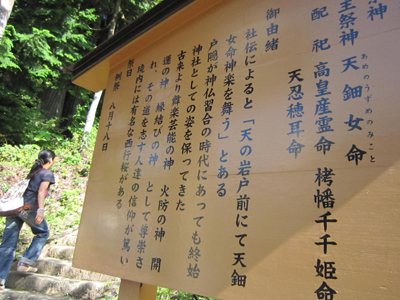 祭神
主祭神 天鈿女命
あめのうずめのみこと
配祀 高皇産霊命 栲幡千千姫命
天忍穂耳命
御由緒
社伝によると「天の岩戸前にて天鈿
女命神楽を舞う」とある
戸隠が神仏習合の時代にあっても終始
神社としての姿を保ってきた
古来より舞楽芸能の神 火防の神 開
運の神 縁結びの神 として尊崇さ
れ、その道を志す人達の信仰が篤い
境内には有名な西行桜がある
祭日
例祭 八月十八日